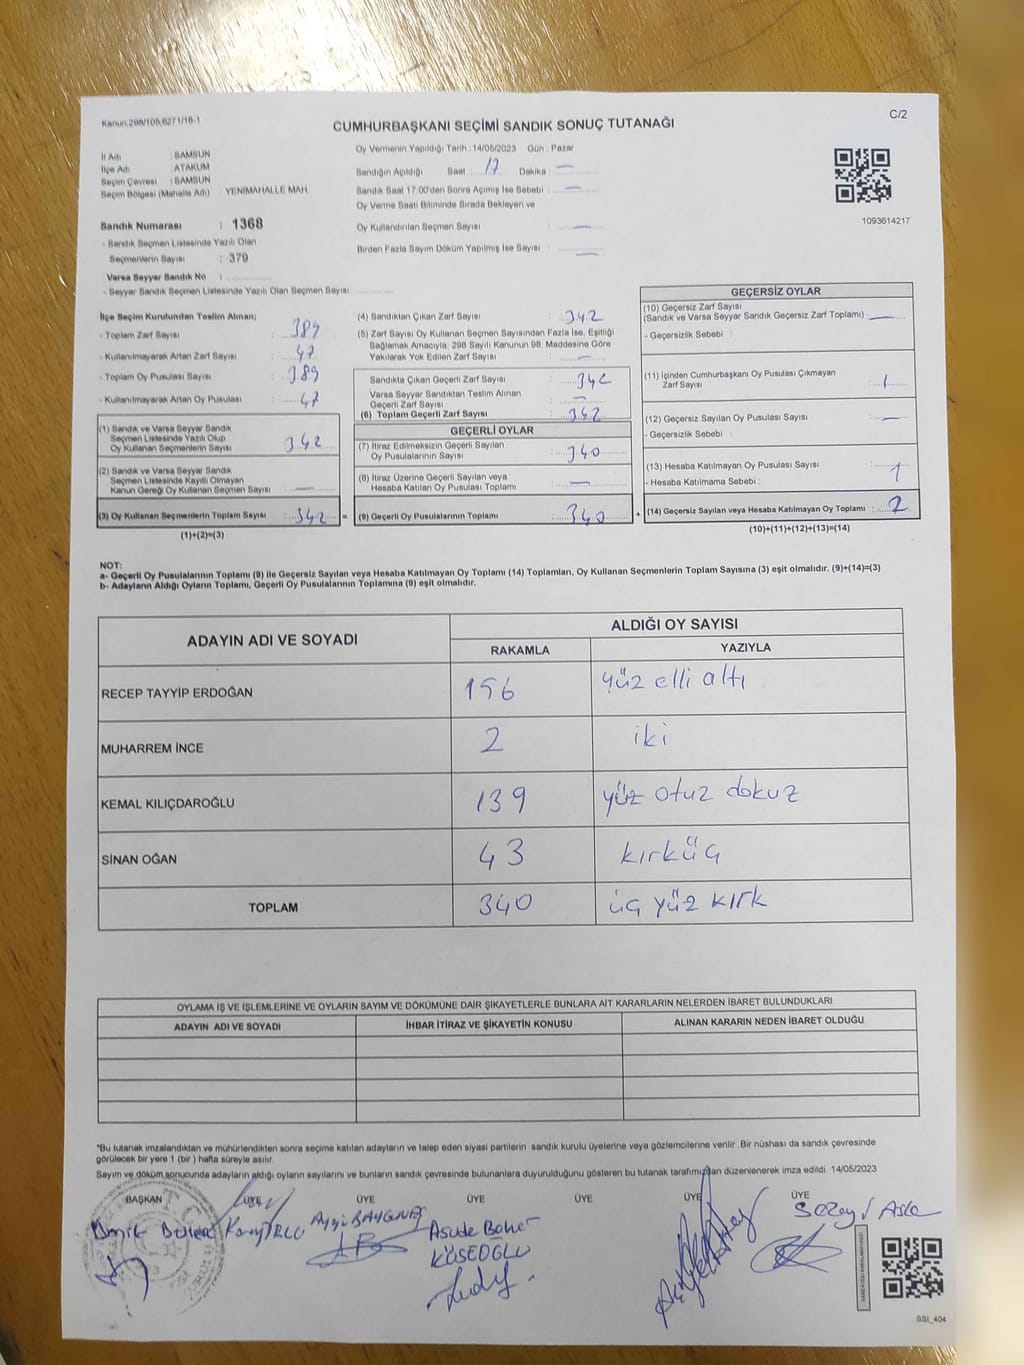 Kanun:298/105,6271/18-1
C/2
CUMHURBAŞKANI SEÇİMİ SANDIK SONUÇ TUTANAĞI
İl Adı : SAMSUN
İlçe Adı : ATAKUM
Seçim Çevresi : SAMSUN
Seçim Bölgesi (Mahalle Adı) : YENİMAHALLE MAH.
Sandık Numarası : 1368
- Sandık Seçmen Listesinde Yazılı Olan
Seçmenlerin Sayısı : 379
Varsa Seyyar Sandık No :
- Seyyar Sandık Seçmen Listesinde Yazılı Olan Seçmen Sayısı:
Oy Vermenin Yapıldığı Tarih : 14/05/2023 Gün : Pazar
Sandığın Açıldığı Saat : 17 Dakika : —
Sandık Saat 17:00'den Sonra Açılmış İse Sebebi : —
Oy Verme Saati Bitiminde Sırada Bekleyen ve
Oy Kullandırılan Seçmen Sayısı : —
Birden Fazla Sayım Döküm Yapılmış İse Sayısı : —
1093614217
İlçe Seçim Kurulundan Teslim Alınan;
- Toplam Zarf Sayısı : 389
- Kullanılmayarak Artan Zarf Sayısı : 47
- Toplam Oy Pusulası Sayısı : 389
- Kullanılmayarak Artan Oy Pusulası : 47
(1) Sandık ve Varsa Seyyar Sandık
Seçmen Listesinde Yazılı Olup
Oy Kullanan Seçmenlerin Sayısı : 342
(2) Sandık ve Varsa Seyyar Sandık
Seçmen Listesinde Kayıtlı Olmayan
Kanun Gereği Oy Kullanan Seçmen Sayısı : —
(3) Oy Kullanan Seçmenlerin Toplam Sayısı : 342 =
(1)+(2)=(3)
(4) Sandıktan Çıkan Zarf Sayısı : 342
(5) Zarf Sayısı Oy Kullanan Seçmen Sayısından Fazla İse, Eşitliği
Sağlamak Amacıyla, 298 Sayılı Kanunun 98. Maddesine Göre
Yakılarak Yok Edilen Zarf Sayısı : —
Sandıkta Çıkan Geçerli Zarf Sayısı : 342
Varsa Seyyar Sandıktan Teslim Alınan
Geçerli Zarf Sayısı : —
(6) Toplam Geçerli Zarf Sayısı : 342
GEÇERLİ OYLAR
(7) İtiraz Edilmeksizin Geçerli Sayılan
Oy Pusulalarının Sayısı : 340
(8) İtiraz Üzerine Geçerli Sayılan veya
Hesaba Katılan Oy Pusulası Toplamı : —
(9) Geçerli Oy Pusulalarının Toplamı : 340 +
GEÇERSİZ OYLAR
(10) Geçersiz Zarf Sayısı
(Sandık ve Varsa Seyyar Sandık Geçersiz Zarf Toplamı) : —
- Geçersizlik Sebebi :
(11) İçinden Cumhurbaşkanı Oy Pusulası Çıkmayan
Zarf Sayısı : 1
(12) Geçersiz Sayılan Oy Pusulası Sayısı : —
- Geçersizlik Sebebi :
(13) Hesaba Katılmayan Oy Pusulası Sayısı : 1
- Hesaba Katılmama Sebebi :
(14) Geçersiz Sayılan veya Hesaba Katılmayan Oy Toplamı : 2
(10)+(11)+(12)+(13)=(14)
NOT:
a- Geçerli Oy Pusulalarının Toplamı (9) ile Geçersiz Sayılan veya Hesaba Katılmayan Oy Toplamı (14) Toplamları, Oy Kullanan Seçmenlerin Toplam Sayısına (3) eşit olmalıdır. (9)+(14)=(3)
b- Adayların Aldığı Oyların Toplamı, Geçerli Oy Pusulalarının Toplamına (9) eşit olmalıdır.
ADAYIN ADI VE SOYADI ALDIĞI OY SAYISI
RAKAMLA YAZIYLA
RECEP TAYYİP ERDOĞAN 156 yüz elli altı
MUHARREM İNCE 2 iki
KEMAL KILIÇDAROĞLU 139 yüz otuz dokuz
SİNAN OĞAN 43 kırküç
TOPLAM 340 üç yüz kırk
OYLAMA İŞ VE İŞLEMLERİNE VE OYLARIN SAYIM VE DÖKÜMÜNE DAİR ŞİKAYETLERLE BUNLARA AİT KARARLARIN NELERDEN İBARET BULUNDUKLARI
ADAYIN ADI VE SOYADI İHBAR İTİRAZ VE ŞİKAYETİN KONUSU ALINAN KARARIN NEDEN İBARET OLDUĞU
*Bu tutanak imzalandıktan ve mühürlendikten sonra seçime katılan adayların ve talep eden siyasi partilerin sandık kurulu üyelerine veya gözlemcilerine verilir .Bir nüshası da sandık çevresinde
görülecek bir yere 1 (bir ) hafta süreyle asılır.
Sayım ve döküm sonucunda adayların aldığı oyların sayılarını ve bunların sandık çevresinde bulunanlara duyurulduğunu gösteren bu tutanak tarafımızdan düzenlenerek imza edildi. 14/05/2023
BAŞKAN ÜYE ÜYE ÜYE ÜYE ÜYE ÜYE
Asude Böher
KÖSEOĞLU
SSI_404